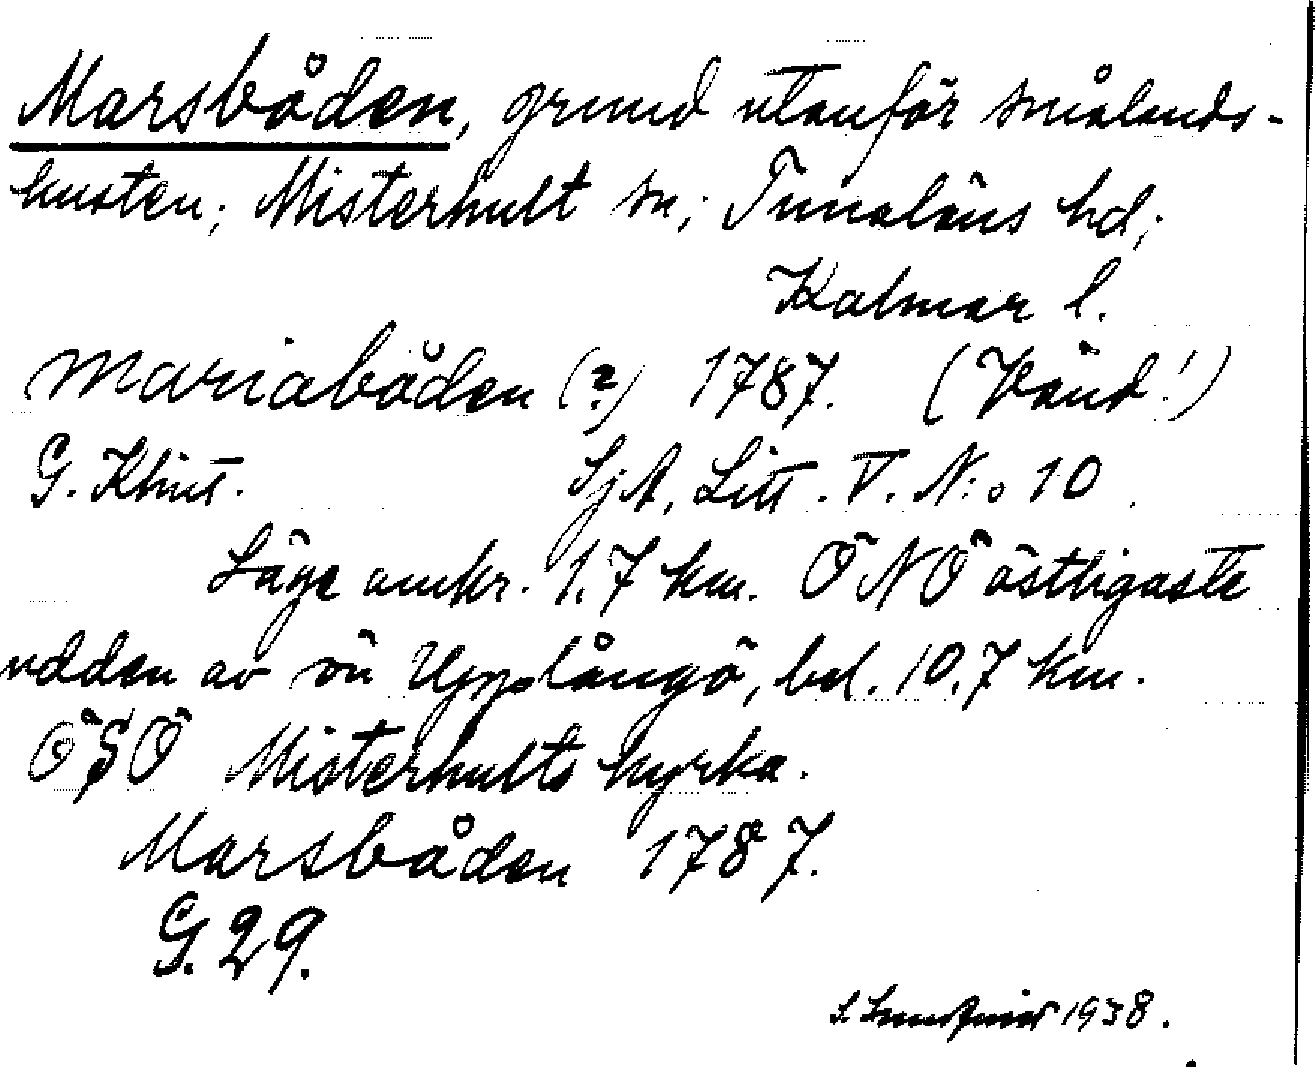 Marsbåden, grund utanför smålands-
kusten; Misterhult sn; Tunaläns hd;
Kalmar l.
Mariabåden (?) 1787. (Vänd!)
G. Klint. SjA, Litt. V. N:o 10.
Läge omkr. 1.7 km. ÖNÖ östligaste
udden av ön Upplångö, bel. 10.7 km.
ÖSÖ Misterhults kyrka.
Marsbåden 1787.
G. 29.
1938.